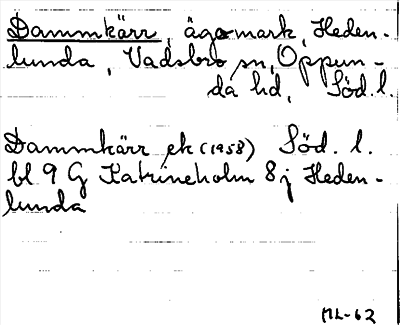 Dammkärr, ägomark, Heden-
lunda, Vadsbro sn, Oppun-
da hd, Söd. l.
Dammkärr ek (1958) Söd. l.
bl 9 G Katrineholm 8 j Heden-
lunda
ML-62